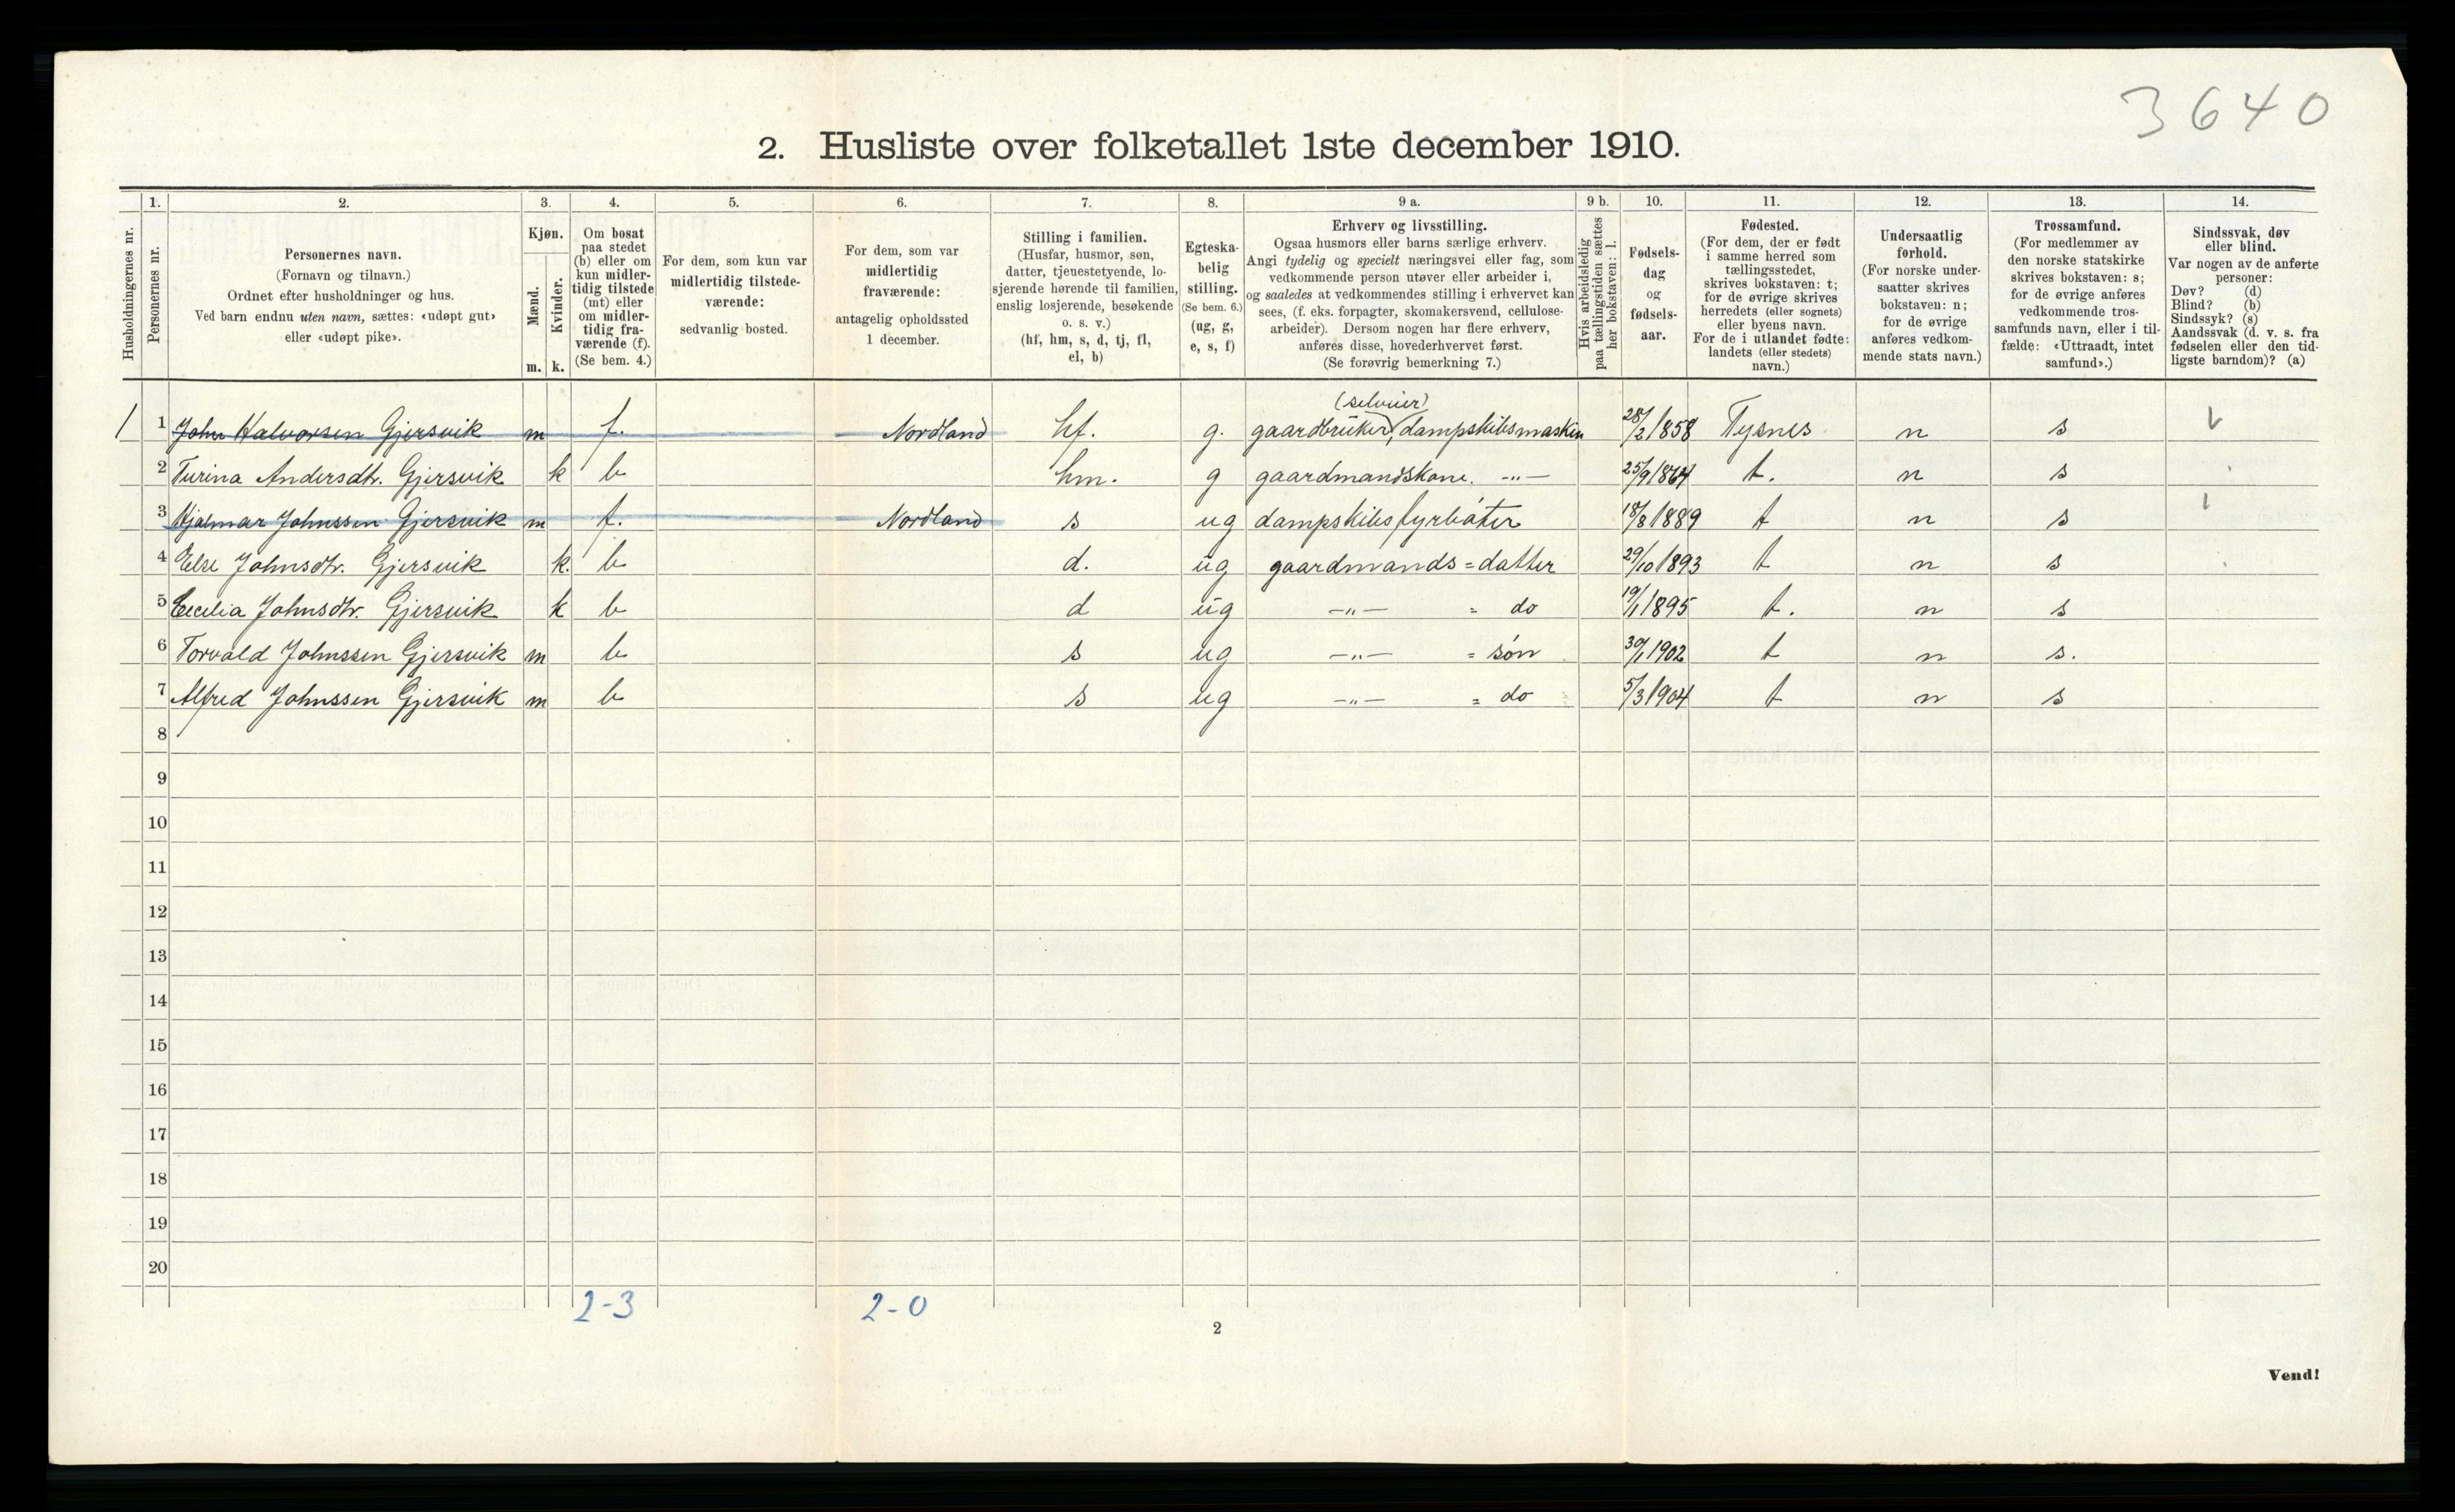 3640
2. Husliste over folketallet 1ste december 1910.
Husholdningernes nr.
1.
Personernes nr.
2.
Personernes navn.
(Fornavn og tilnavn.)
Ordnet efter husholdninger og hus.
Ved barn endnu uten navn, sættes: «udøpt gut»
eller «udøpt pike».
3.
Kjøn.
Mænd.
Kvinder.
m. k.
4.
Om bosat
paa stedet
(b) eller om
kun midler-
tidig tilstede
(mt) eller
om midler-
tidig fra-
værende (f).
(Se bem. 4.)
5.
For dem, som kun var
midlertidig tilstede-
værende:
sedvanlig bosted.
6.
For dem, som var
midlertidig
fraværende:
antagelig opholdssted
1 december.
7.
Stilling i familien.
(Husfar, husmor, søn,
datter, tjenestetyende, lo-
sjerende hørende til familien,
enslig losjerende, besøkende
o. s. v.)
(hf, hm, s, d, tj, fl,
el, b)
8.
Egteska-
belig
stilling.
(Se bem. 6.)
(ug, g,
e, s, f)
9 a.
Erhverv og livsstilling.
Ogsaa husmors eller barns særlige erhverv.
Angi tydelig og specielt næringsvei eller fag, som
vedkommende person utøver eller arbeider i,
og saaledes at vedkommendes stilling i erhvervet kan
sees, (f. eks. forpagter, skomakersvend, cellulose-
arbeider). Dersom nogen har flere erhverv,
anføres disse, hovederhvervet først.
(Se forøvrig bemerkning 7.)
9 b.
Hvis arbeidsledig
paa tællingstiden sættes
her bokstaven: l.
10.
Fødsels-
dag
og
fødsels-
aar.
11.
Fødested.
(For dem, der er født
i samme herred som
tællingsstedet,
skrives bokstaven: t;
for de øvrige skrives
herredets (eller sognets)
eller byens navn.
For de i utlandet fødte:
landets (eller stedets)
navn.)
12.
Undersaatlig
forhold.
(For norske under-
saatter skrives
bokstaven: n;
for de øvrige
anføres vedkom-
mende stats navn.)
13.
Trossamfund.
(For medlemmer av
den norske statskirke
skrives bokstaven: s;
for de øvrige anføres
vedkommende tros-
samfunds navn, eller i til-
fælde: «Uttraadt, intet
samfund».)
14.
Sindssvak, døv
eller blind.
Var nogen av de anførte
personer:
Døv? (d)
Blind? (b)
Sindssyk? (s)
Aandssvak (d. v. s. fra
fødselen eller den tid-
ligste barndom)? (a)
(selveier)
1 1 John Halvorsen Gjersvik m f. Nordland hf. g. gaardbruker, dampskibsmaskin 28/2 1858 Tysnes n s
2 Turina Andersdtr. Gjersvik k b hm. g gaardmandskone. -"- 25/9 1864 t. n s
3 Hjalmar Johnssen Gjersvik m f. Nordland s ug dampskibsfyrbøter 18/8 1889 t n s
4 Else Johnsdtr. Gjersvik k. b d. ug gaardmands = datter 29/10 1893 t n s
5 Cecilia Johnsdtr. Gjersvik k b d ug -"- = do 19/1 1895 t. n s
6 Torvald Johnssen Gjersvik m b s ug -"- = søn 30/1 1902 t n s.
7 Alfred Johnssen Gjersvik m b s ug -"- = do 5/3 1904 t n s
8
9
10
11
12
13
14
15
16
17
18
19
20
2-3 2-0
2
Vend!